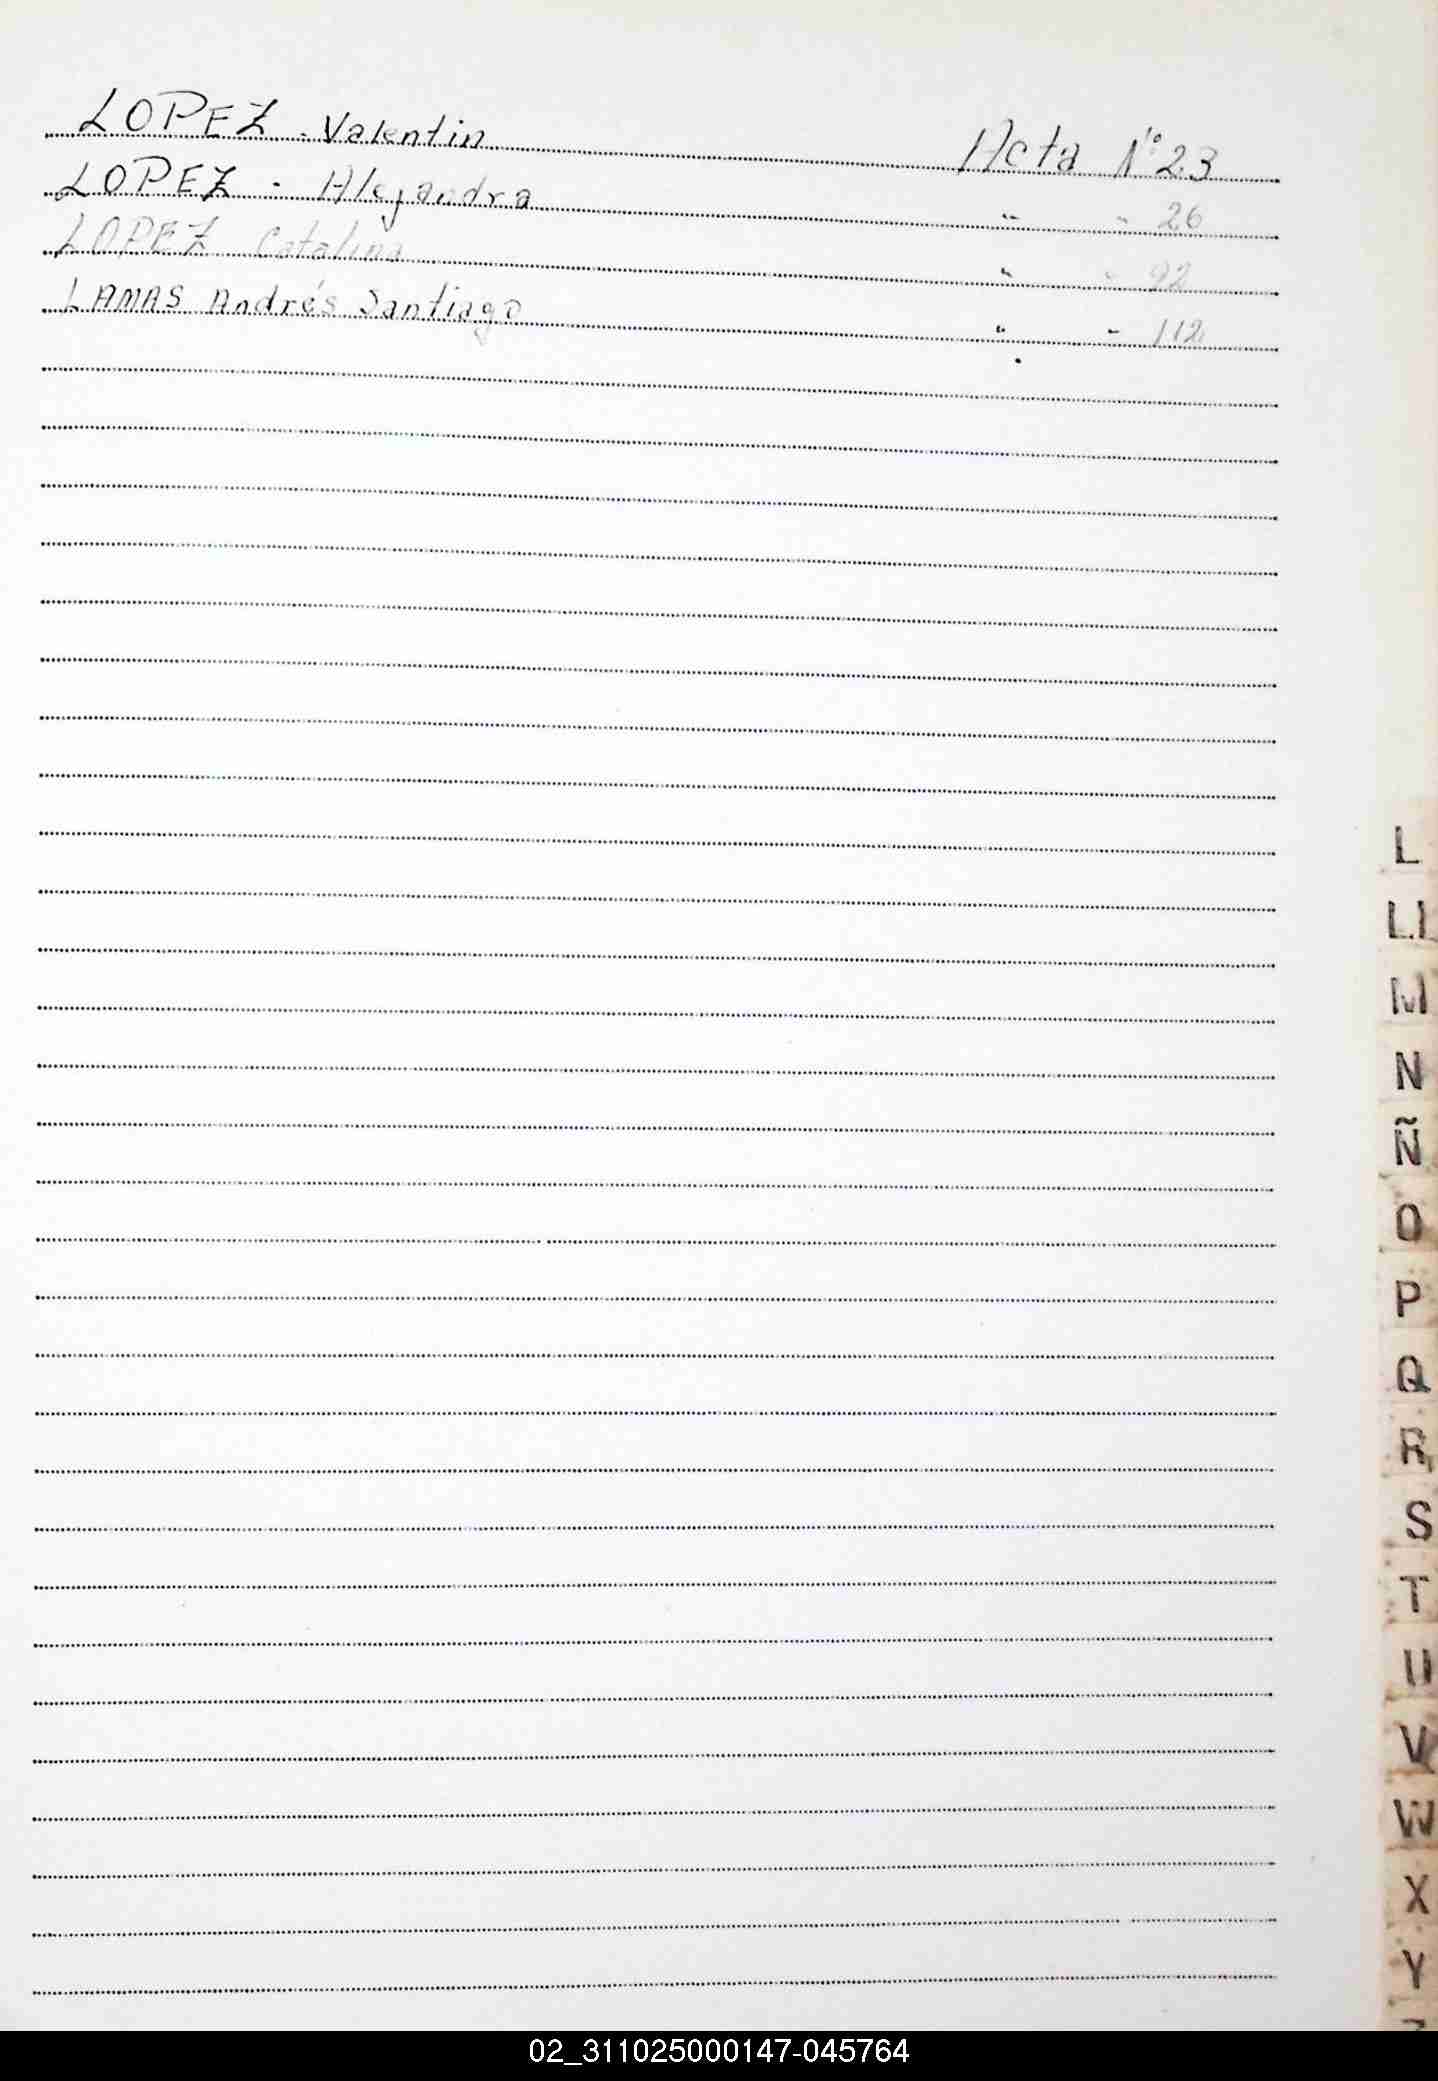 LOPEZ - Valentin Acta Nº 23
LOPEZ - Alejandra " " 26
LOPEZ Catalina " " 92
LAMAS Andrés Santiago " " 112
L
Ll
M
N
Ñ
O
P
Q
R
S
T
U
V
W
X
Y
02_311025000147-045764